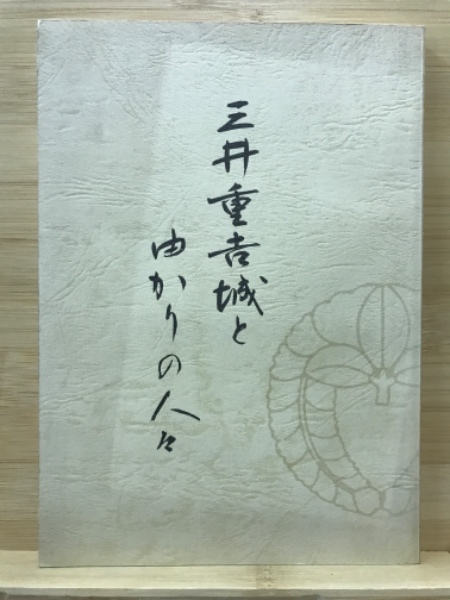 三井重吉城と
由かりの人々